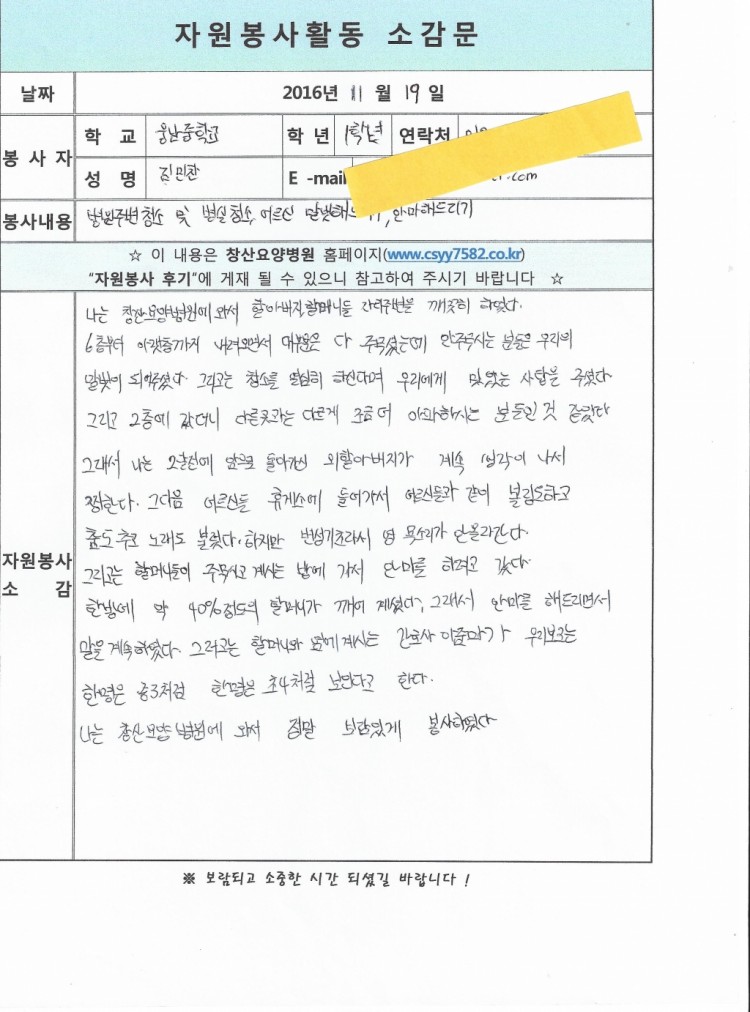 자원봉사활동 소감문
날짜 2016년 11 월 19 일
봉사자 학 교 웅남중학교 학 년 1학년 연락처
성 명 김민찬 E -mail
봉사내용 병원주변청소 및 병실청소, 어르신 말벗해드리기, 안마해드리기
☆ 이 내용은 창산요양병원 홈페이지(www.csyy7582.co.kr)
"자원봉사 후기"에 게재 될 수 있으니 참고하여 주시기 바랍니다 ☆
자원봉사 소 감
나는 창산요양병원에 와서 할아버지,할머니들 주변을 깨끗히 하였다.
6층부터 아랫층까지 내려오면서 대부분은 다 주무셨는데 안주무시는 분들은 우리의
말벗이 되어주셨다. 그리고는 청소를 열심히 하신다며 우리에게 맛있는 사탕을 주셨다
그리고 2층에 갔더니 다른곳과는 다르게 조금 더 아파하시는 분들인 것 같았다
그래서 나는 2달전에 암으로 돌아가신 외할아버지가 계속 생각이 나서
찡한다. 그다음 어르신들 휴게소에 들어가서 어르신들과 같이 볼링도하고
춤도 추고 노래도 불렀다. 하지만 변성기초라서 영 목소리가 안올라간다.
그리고는 할머니들이 주무시고 계시는 방에 가서 안마를 하려고 갔다.
한방에 약 40%정도의 할머니가 깨어 계셨다, 그래서 안마를 해드리면서
말을 계속하였다. 그러고는 할머니와 옆에계시는 간호사 아줌마가 우리보고는
한명은 중3처럼 한명은 초4처럼 보인다고 한다.
나는 창산요양병원에 와서 정말 보람있게 봉사하였다
※ 보람되고 소중한 시간 되셨길 바랍니다 !